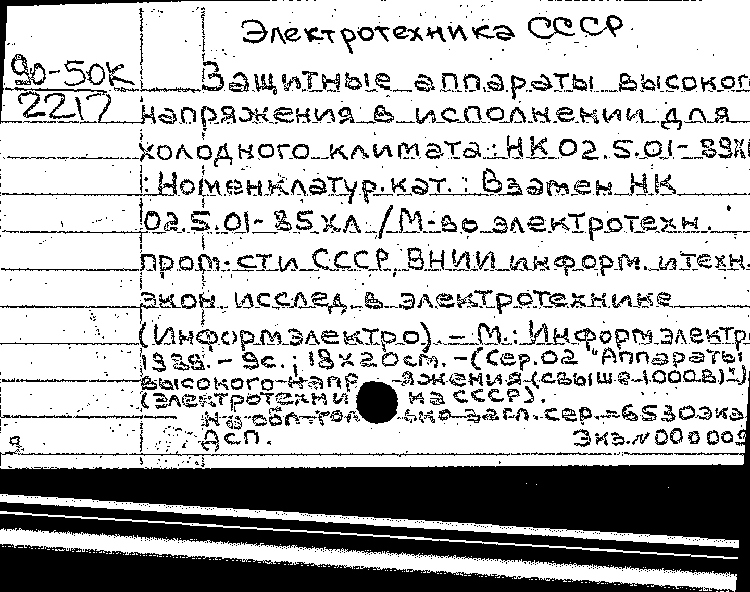 Электротехника СССР
90-50К
2217
Защитные аппараты высоког
напряжения в исполнении для
холодного климата: НК 02.5.01-89ХЛ
: Номенклатур. кат. : Взамен НК
02.5.01-85ХЛ / М-во электротехн.
пром-сти СССР, ВНИИ информ. и техн.
экон. исслед. в электротехнике
(Информэлектро). - М.: Информэлектро
1988. - 9с.; 18х20см. - (Сер.02 "Аппараты
высокого напр яжения (свыше 1000В)")
(Электротехни ка СССР).
На обл. тол ько загл. сер. - 6530экз
ДСП. Экз. N 000009
9